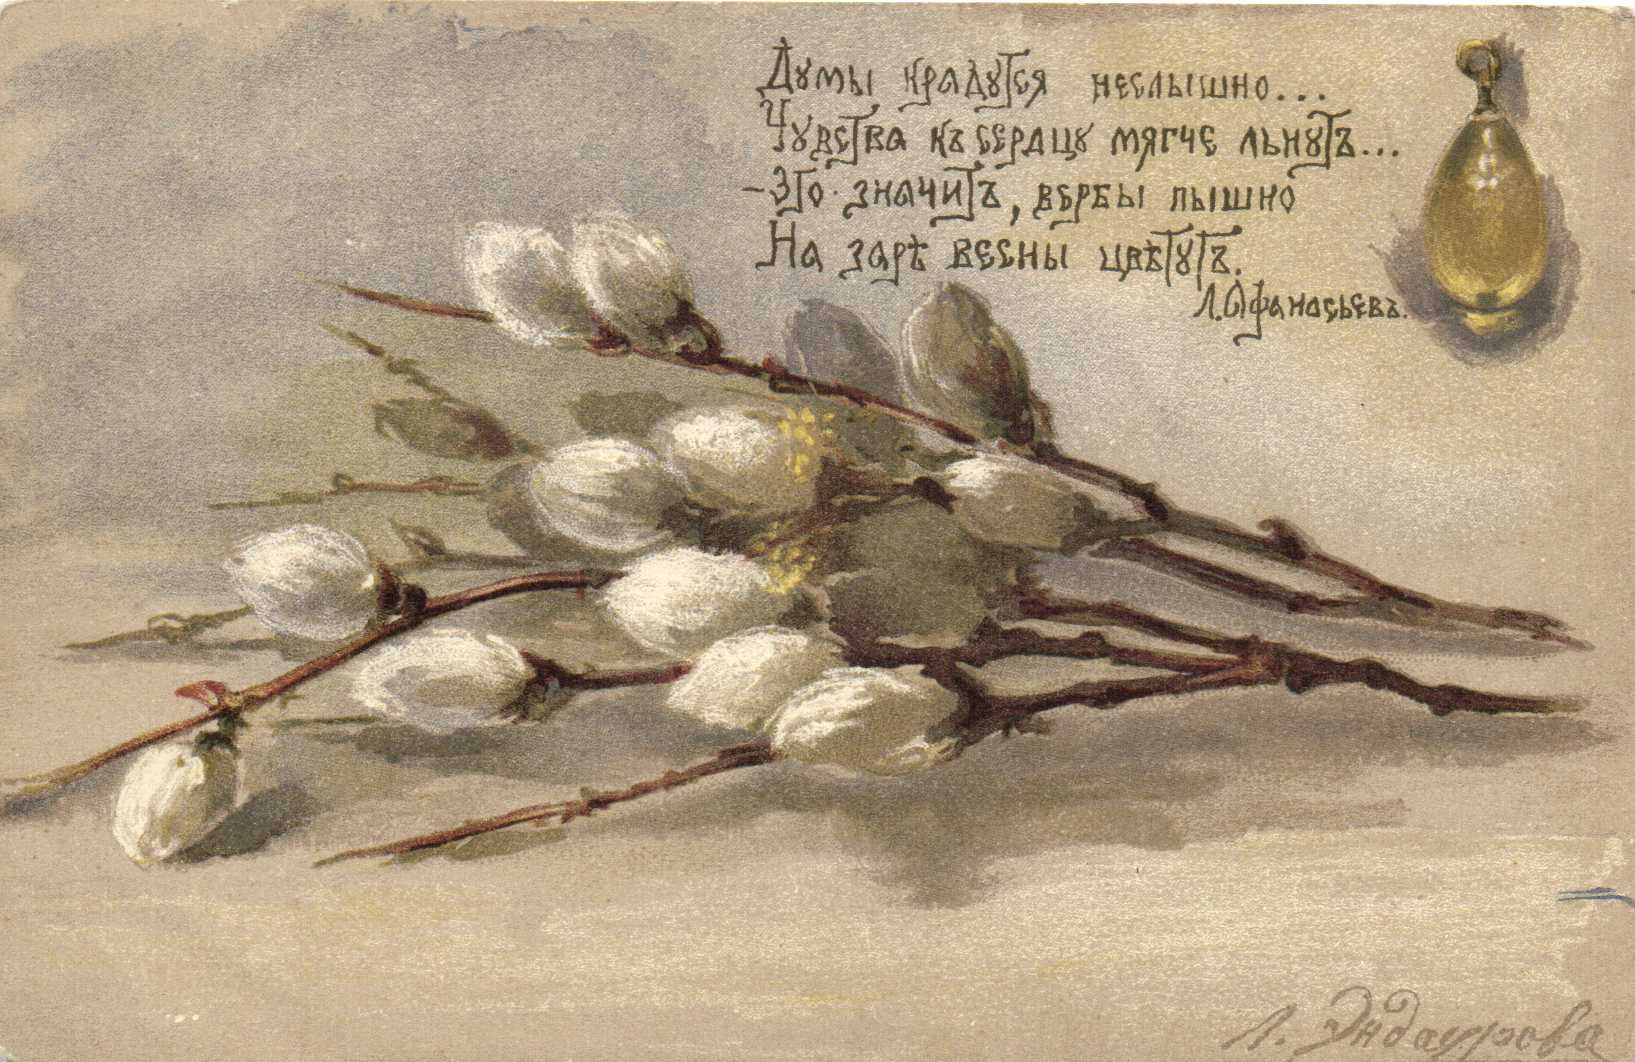 Думы крадутся неслышно...
Чувства къ сердцу мягче льнутъ...
–Это значитъ, вербы пышно
На зарѣ весны цвѣтутъ.
Л. Афанасьевъ.
Л. Эндаурова